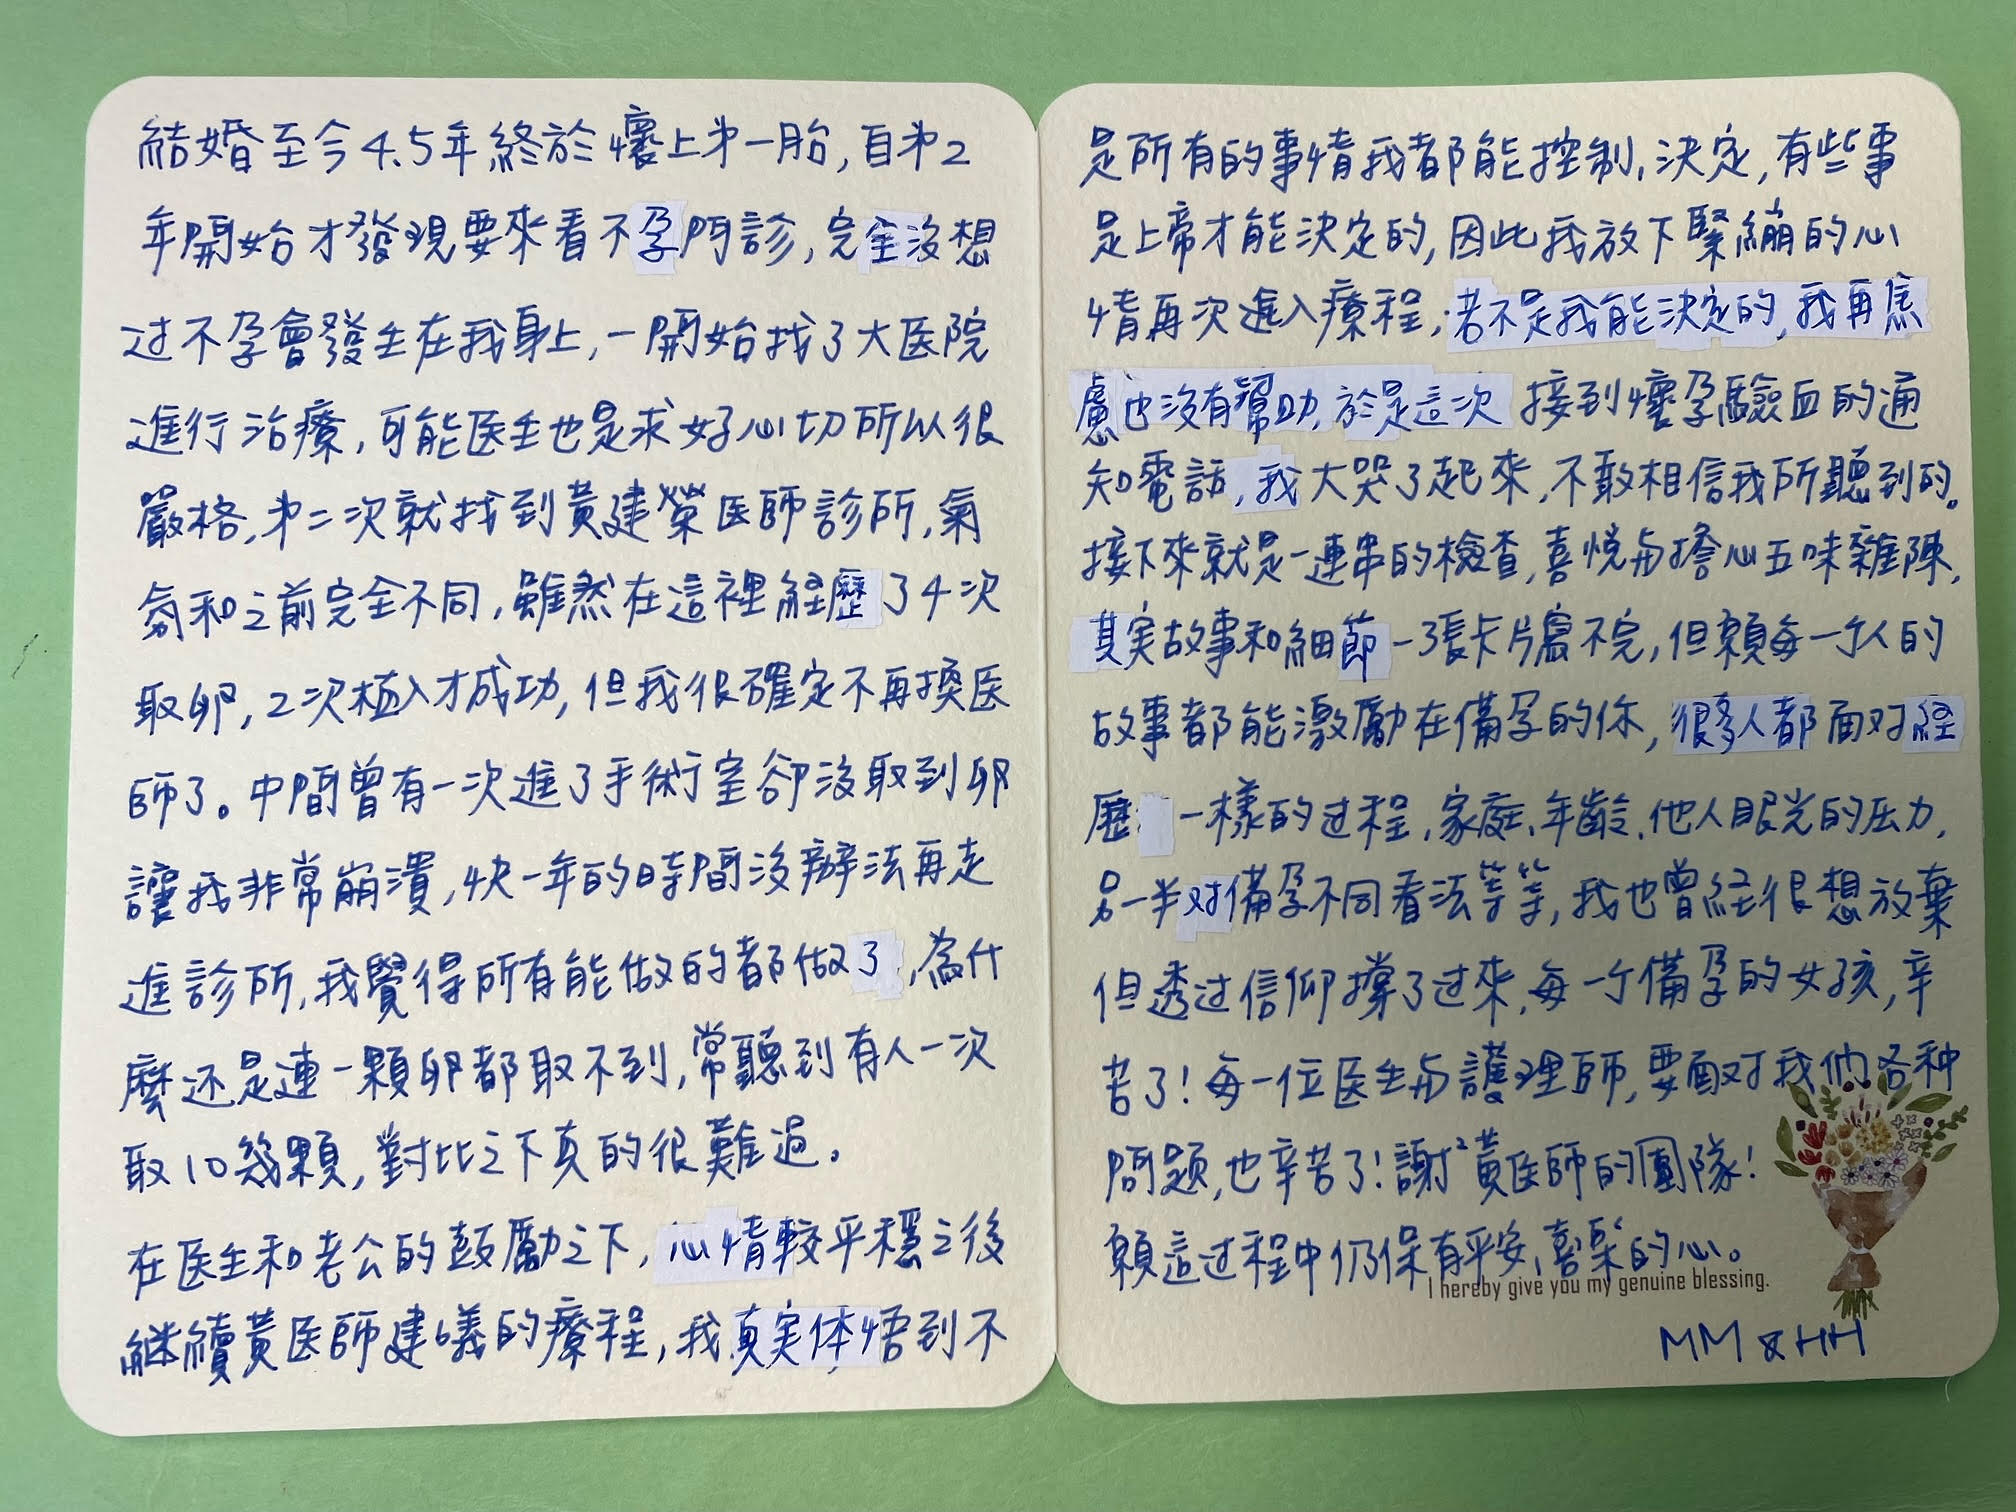 結婚至今4.5年終於懷上第一胎,自第2
年開始才發現要來看不孕門診,完全沒想
过不孕會發生在我身上,一開始找了大医院
進行治療,可能医生也是求好心切所以很
嚴格,第二次就找到黃建榮医師診所,氣
氛和之前完全不同,雖然在這裡経歷了4次
取卵,2次植入才成功,但我很確定不再換医
師了。中間曾有一次進了手術室卻沒取到卵
讓我非常崩潰,快一年的時間沒辦法再走
進診所,我覺得所有能做的都做了,為什
麼还是連一顆卵都取不到,常聽到有人一次
取10幾顆,對比之下真的很難過。
在医生和老公的鼓勵之下,心情較平穩之後
継續黃医師建議的療程,我真実体悟到不
是所有的事情我都能控制、決定,有些事
是上帝才能決定的,因此我放下緊繃的心
情再次進入療程,若不是我能決定的,我再焦
慮也沒有幫助,於是這次接到懷孕驗血的通
知電話,我大哭了起來,不敢相信我所聽到的。
接下來就是一連串的檢查,喜悅与擔心五味雜陳,
其実故事和細節一張卡片寫不完,但願每一个人的
故事都能激勵在備孕的你,很多人都面对経
歷一樣的过程,家庭、年齡、他人眼光的压力,
另一半对備孕不同看法等等,我也曾経很想放棄
但透过信仰撐了过來,每一个備孕的女孩,辛
苦了!每一位医生与護理師,要面对我們各种
問題,也辛苦了!謝²黃医師的團隊!
願這过程中仍保有平安、喜樂的心。
I hereby give you my genuine blessing.
MM & HH